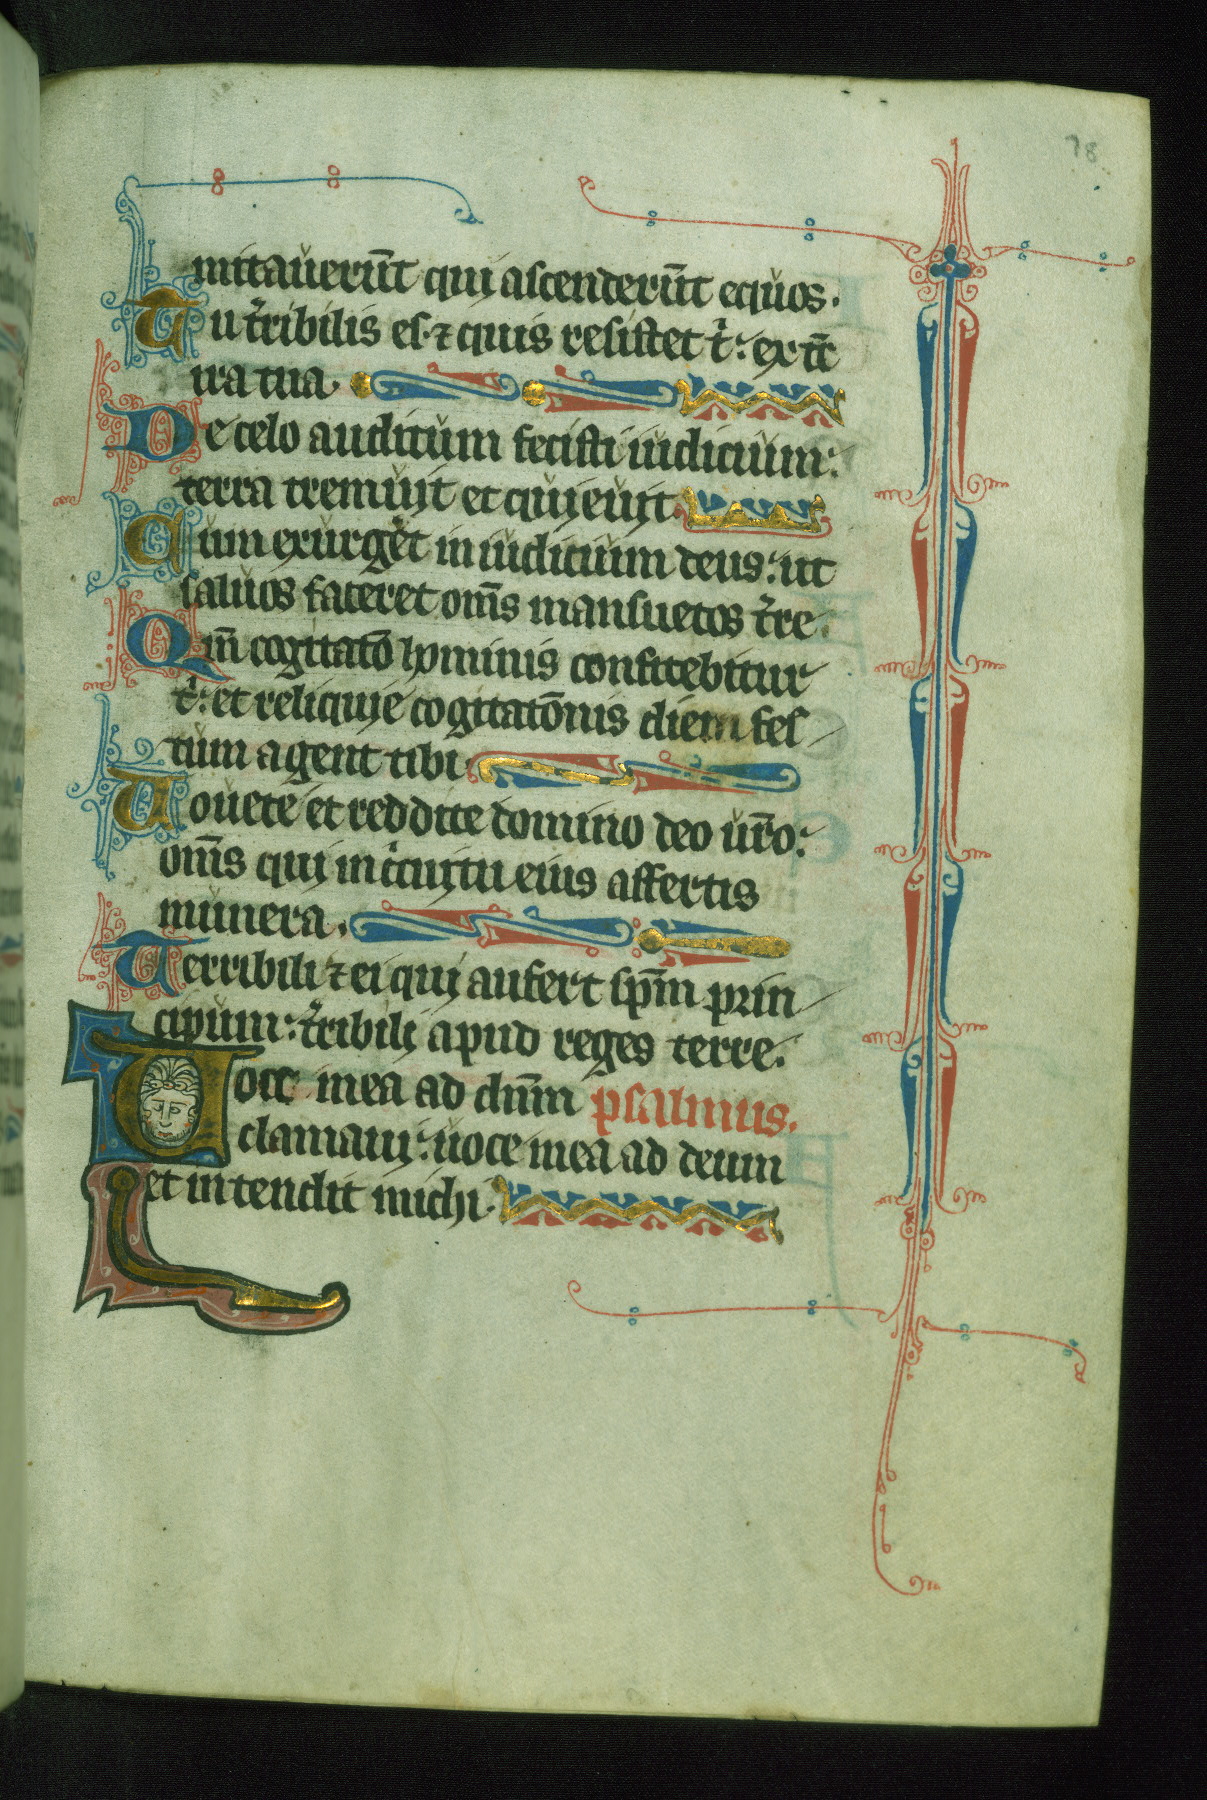 78
mitauerūt qui ascenderūt equos.
Tu tͥribilis es ⁊ quis resistet tͥ: ex tc̄
ira tua.
De celo auditum fecisti iudicium:
terra tremuit et quieuit.
Cum exurget in iudicium deus: ut
saluos faceret om̄s mansuetos tͥre.
Qm̄ cogitatō hominis confitebitur
tͥ: et reliquie cogitatōnis diem fes
tum agent tibi.
Uouete et reddite domino deo ūro:
om̄s qui in cͥcuitu eius affertis
munera.
Terribili ⁊ ei qui aufert sp̄m prin
cipum: tͥribili apud reges terre.
Uoce mea ad dn̄m psalmus.
clamaui: uoce mea ad deum
et intendit michi.